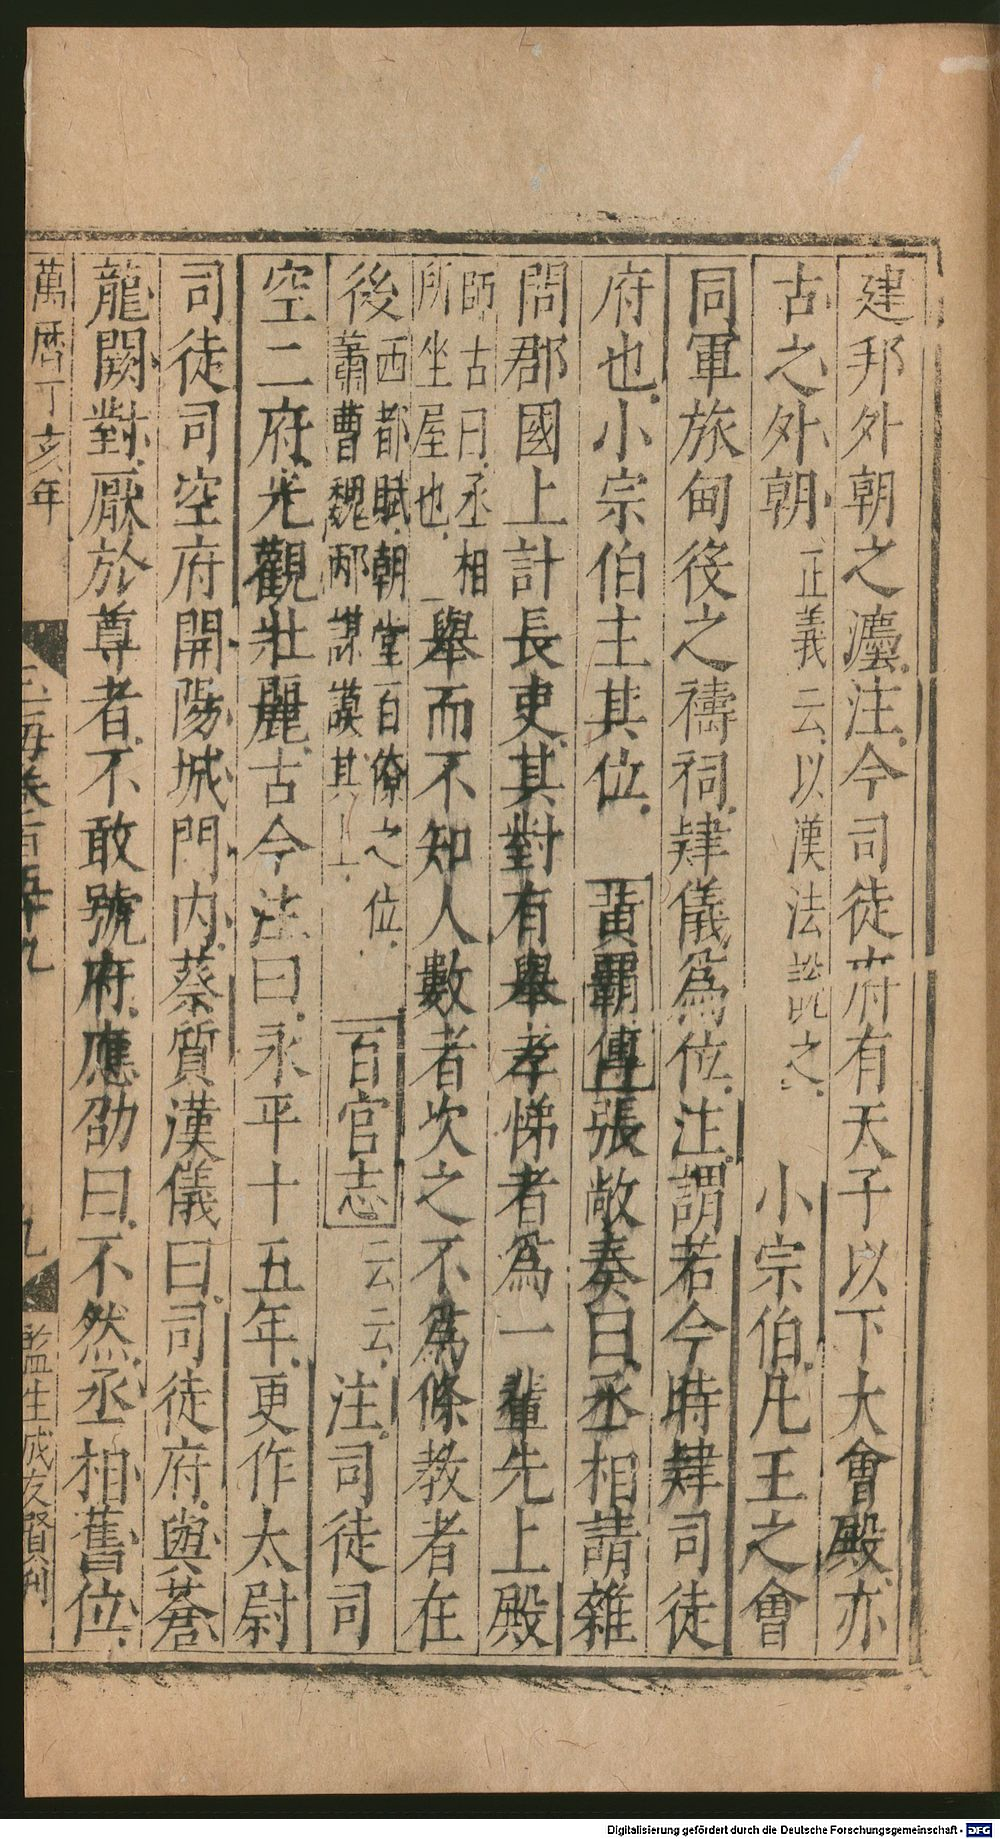 建邦外朝之灋注今司徒府有天子以下大會殿亦
古之外朝正義云以漢法說之小宗伯凡王之會
同軍旅甸役之禱祠肄儀為位注謂若今時肄司徒
府也小宗伯主其位黃霸傳張敞奏曰丞相請雜
問郡國上計長吏其對有舉孝悌者為一輩先上殿
師古曰丞相所坐屋也一舉而不知人數者次之不為條教者在
後西都賦朝堂百僚之位蕭曹魏邴謀謨其上百官志云云注司徒司
空二府光觀壯麗古今注曰永平十五年更作太尉
司徒司空府開陽城門內蔡質漢儀曰司徒府與蒼
龍闕對厥於尊者不敢號府應劭曰不然丞相舊位
萬曆丁亥年
玉海卷百五十九
九
監生戚友賢刊
Digitalisierung gefördert durch die Deutsche Forschungsgemeinschaft - DFG